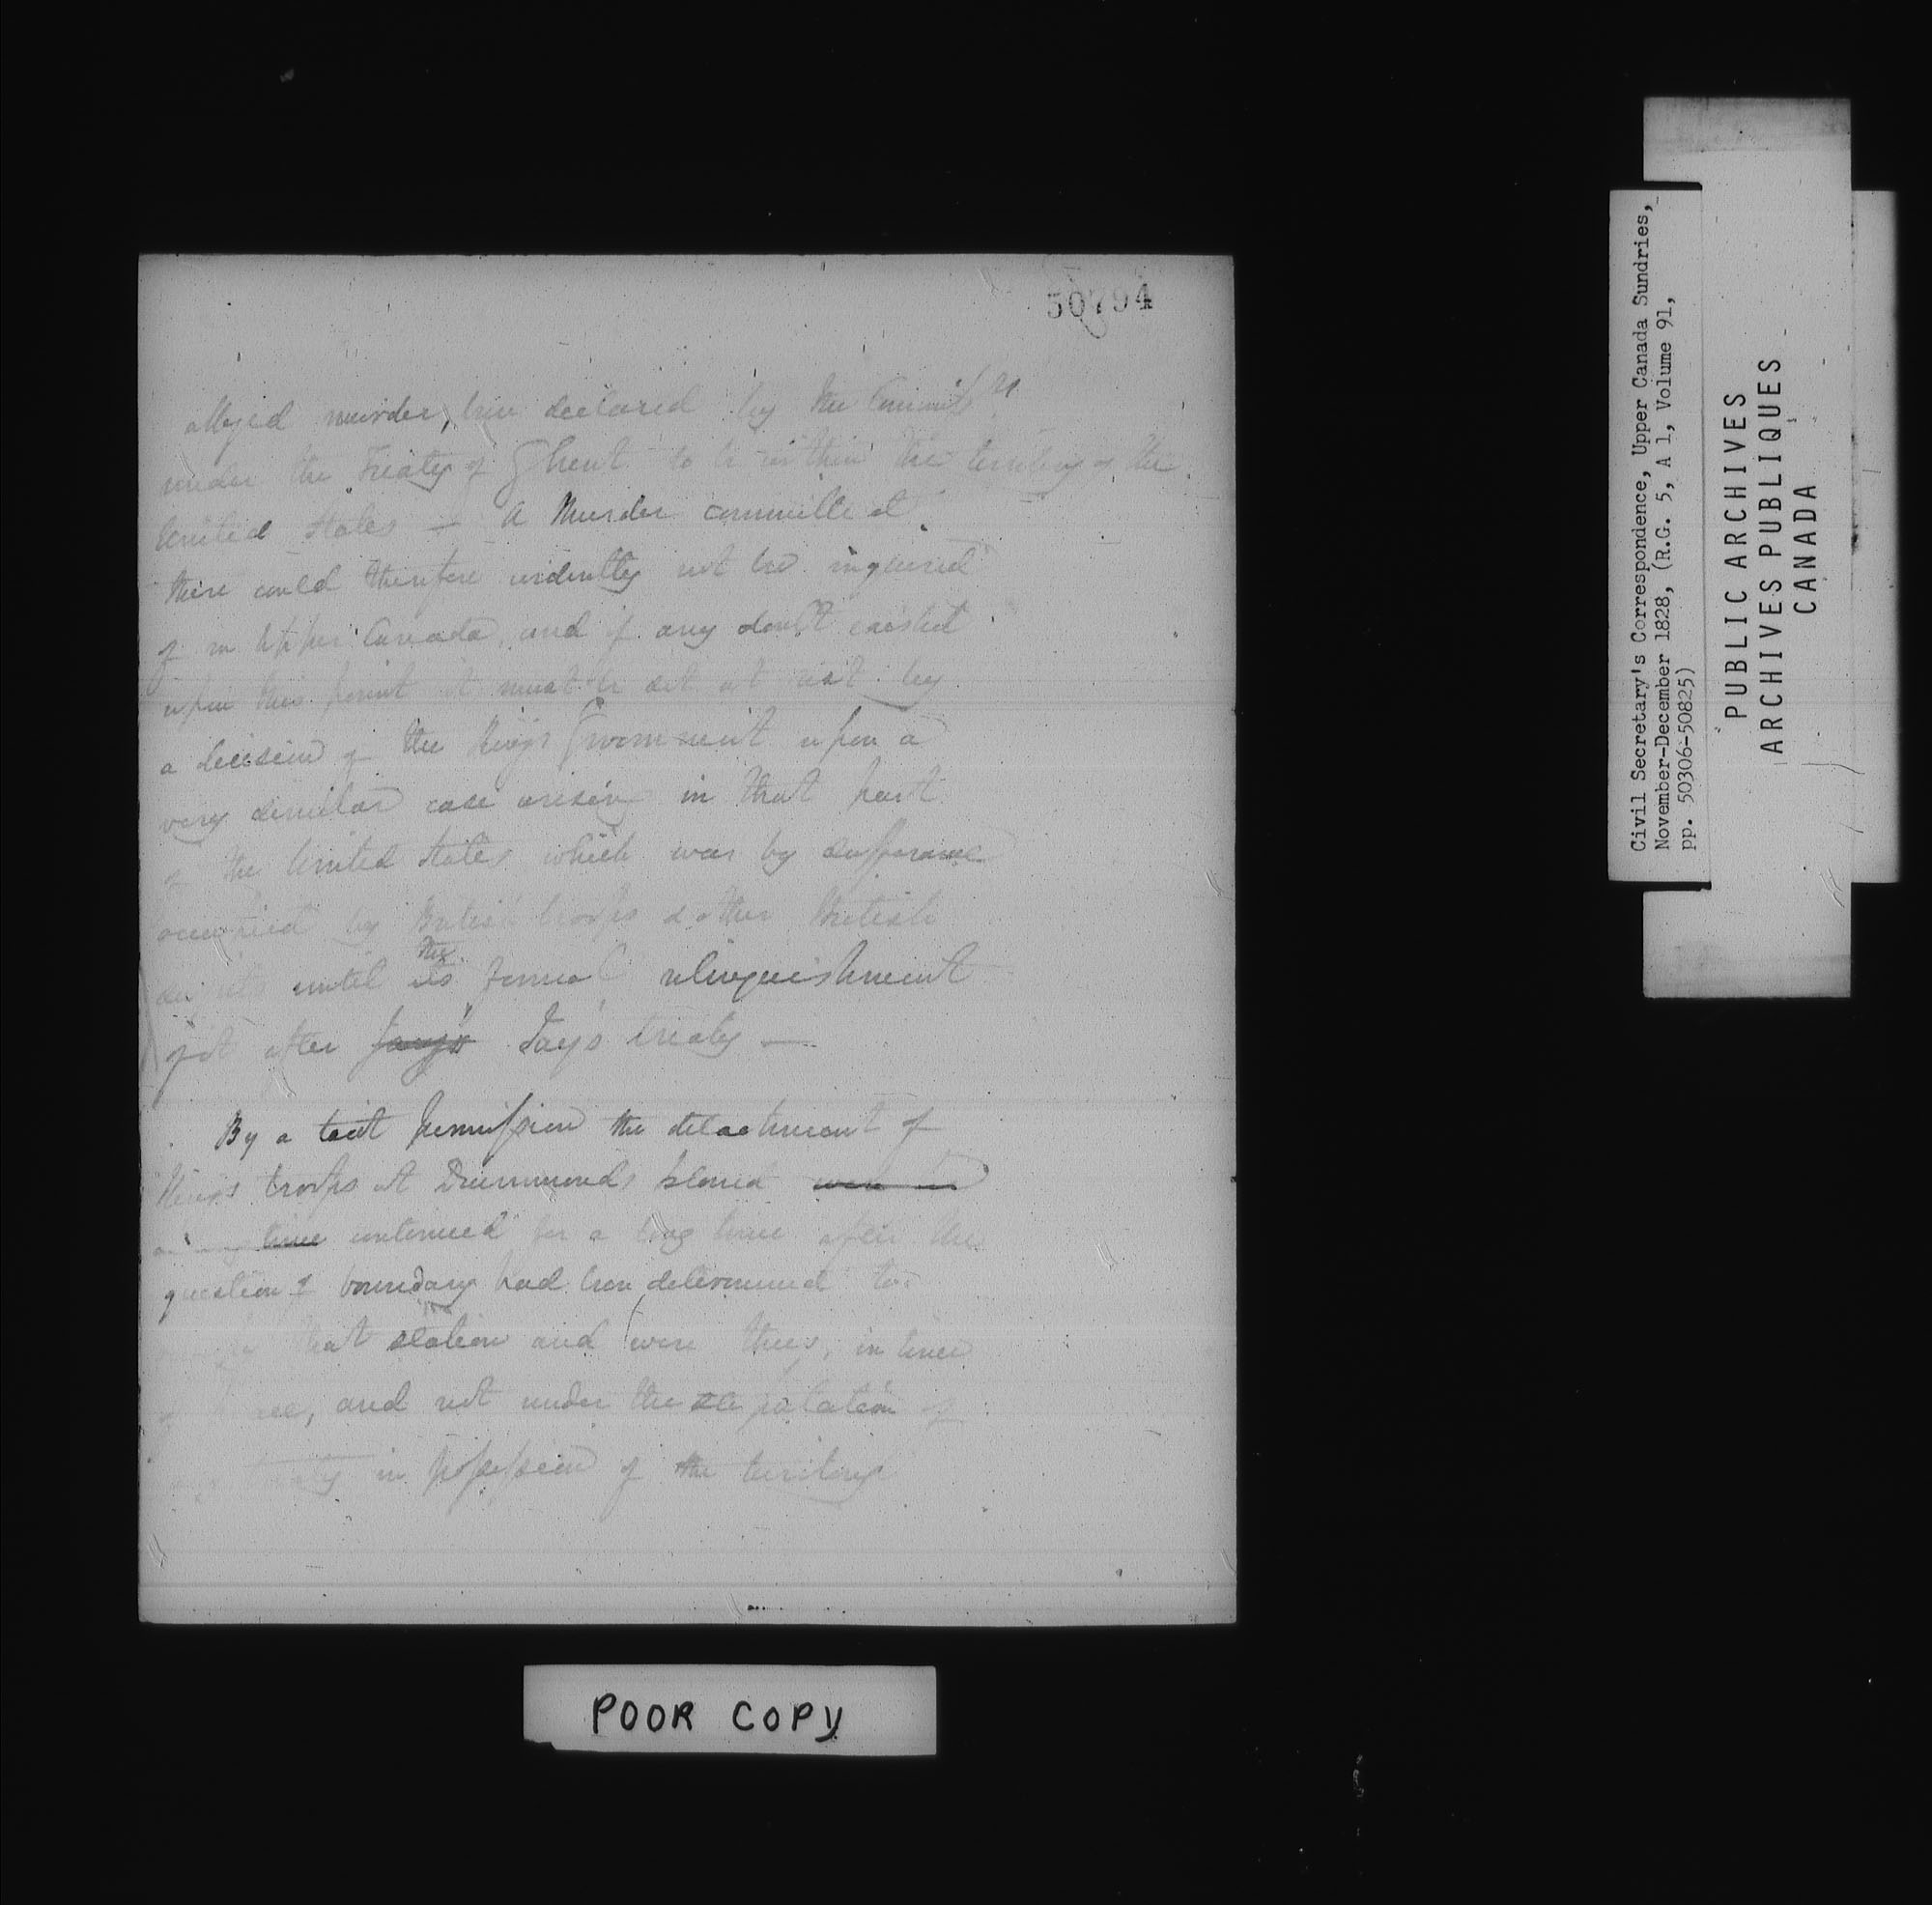 50794
alleged murder, been declared by the Commissrs
under the Treaty of Ghent to be within the territory of the
United States — A Murder committed
there could therefore evidently not be inquired
of in Upper Canada, and if any doubt existed
upon this point it must be set at rest by
a decision of the King's Government upon a
very similar case arising in that part
of the United States which was by sufferance
occupied by British troops & other British
until its the formal relinquishment
of it after Jay's Jay's treaty —
By a tacit permission the detachment of
Kings troops at Drummonds Island were in
time continued for a long time after the
question of boundary had been determined to
that station and were thus, in time
of peace, and not under the stipulation of
treaty in possession of the territory
POOR COPY
Civil Secretary's Correspondence, Upper Canada Sundries,
November-December 1828, (R.G. 5, A 1, Volume 91,
pp. 50306-50825)
PUBLIC ARCHIVES
ARCHIVES PUBLIQUES
CANADA